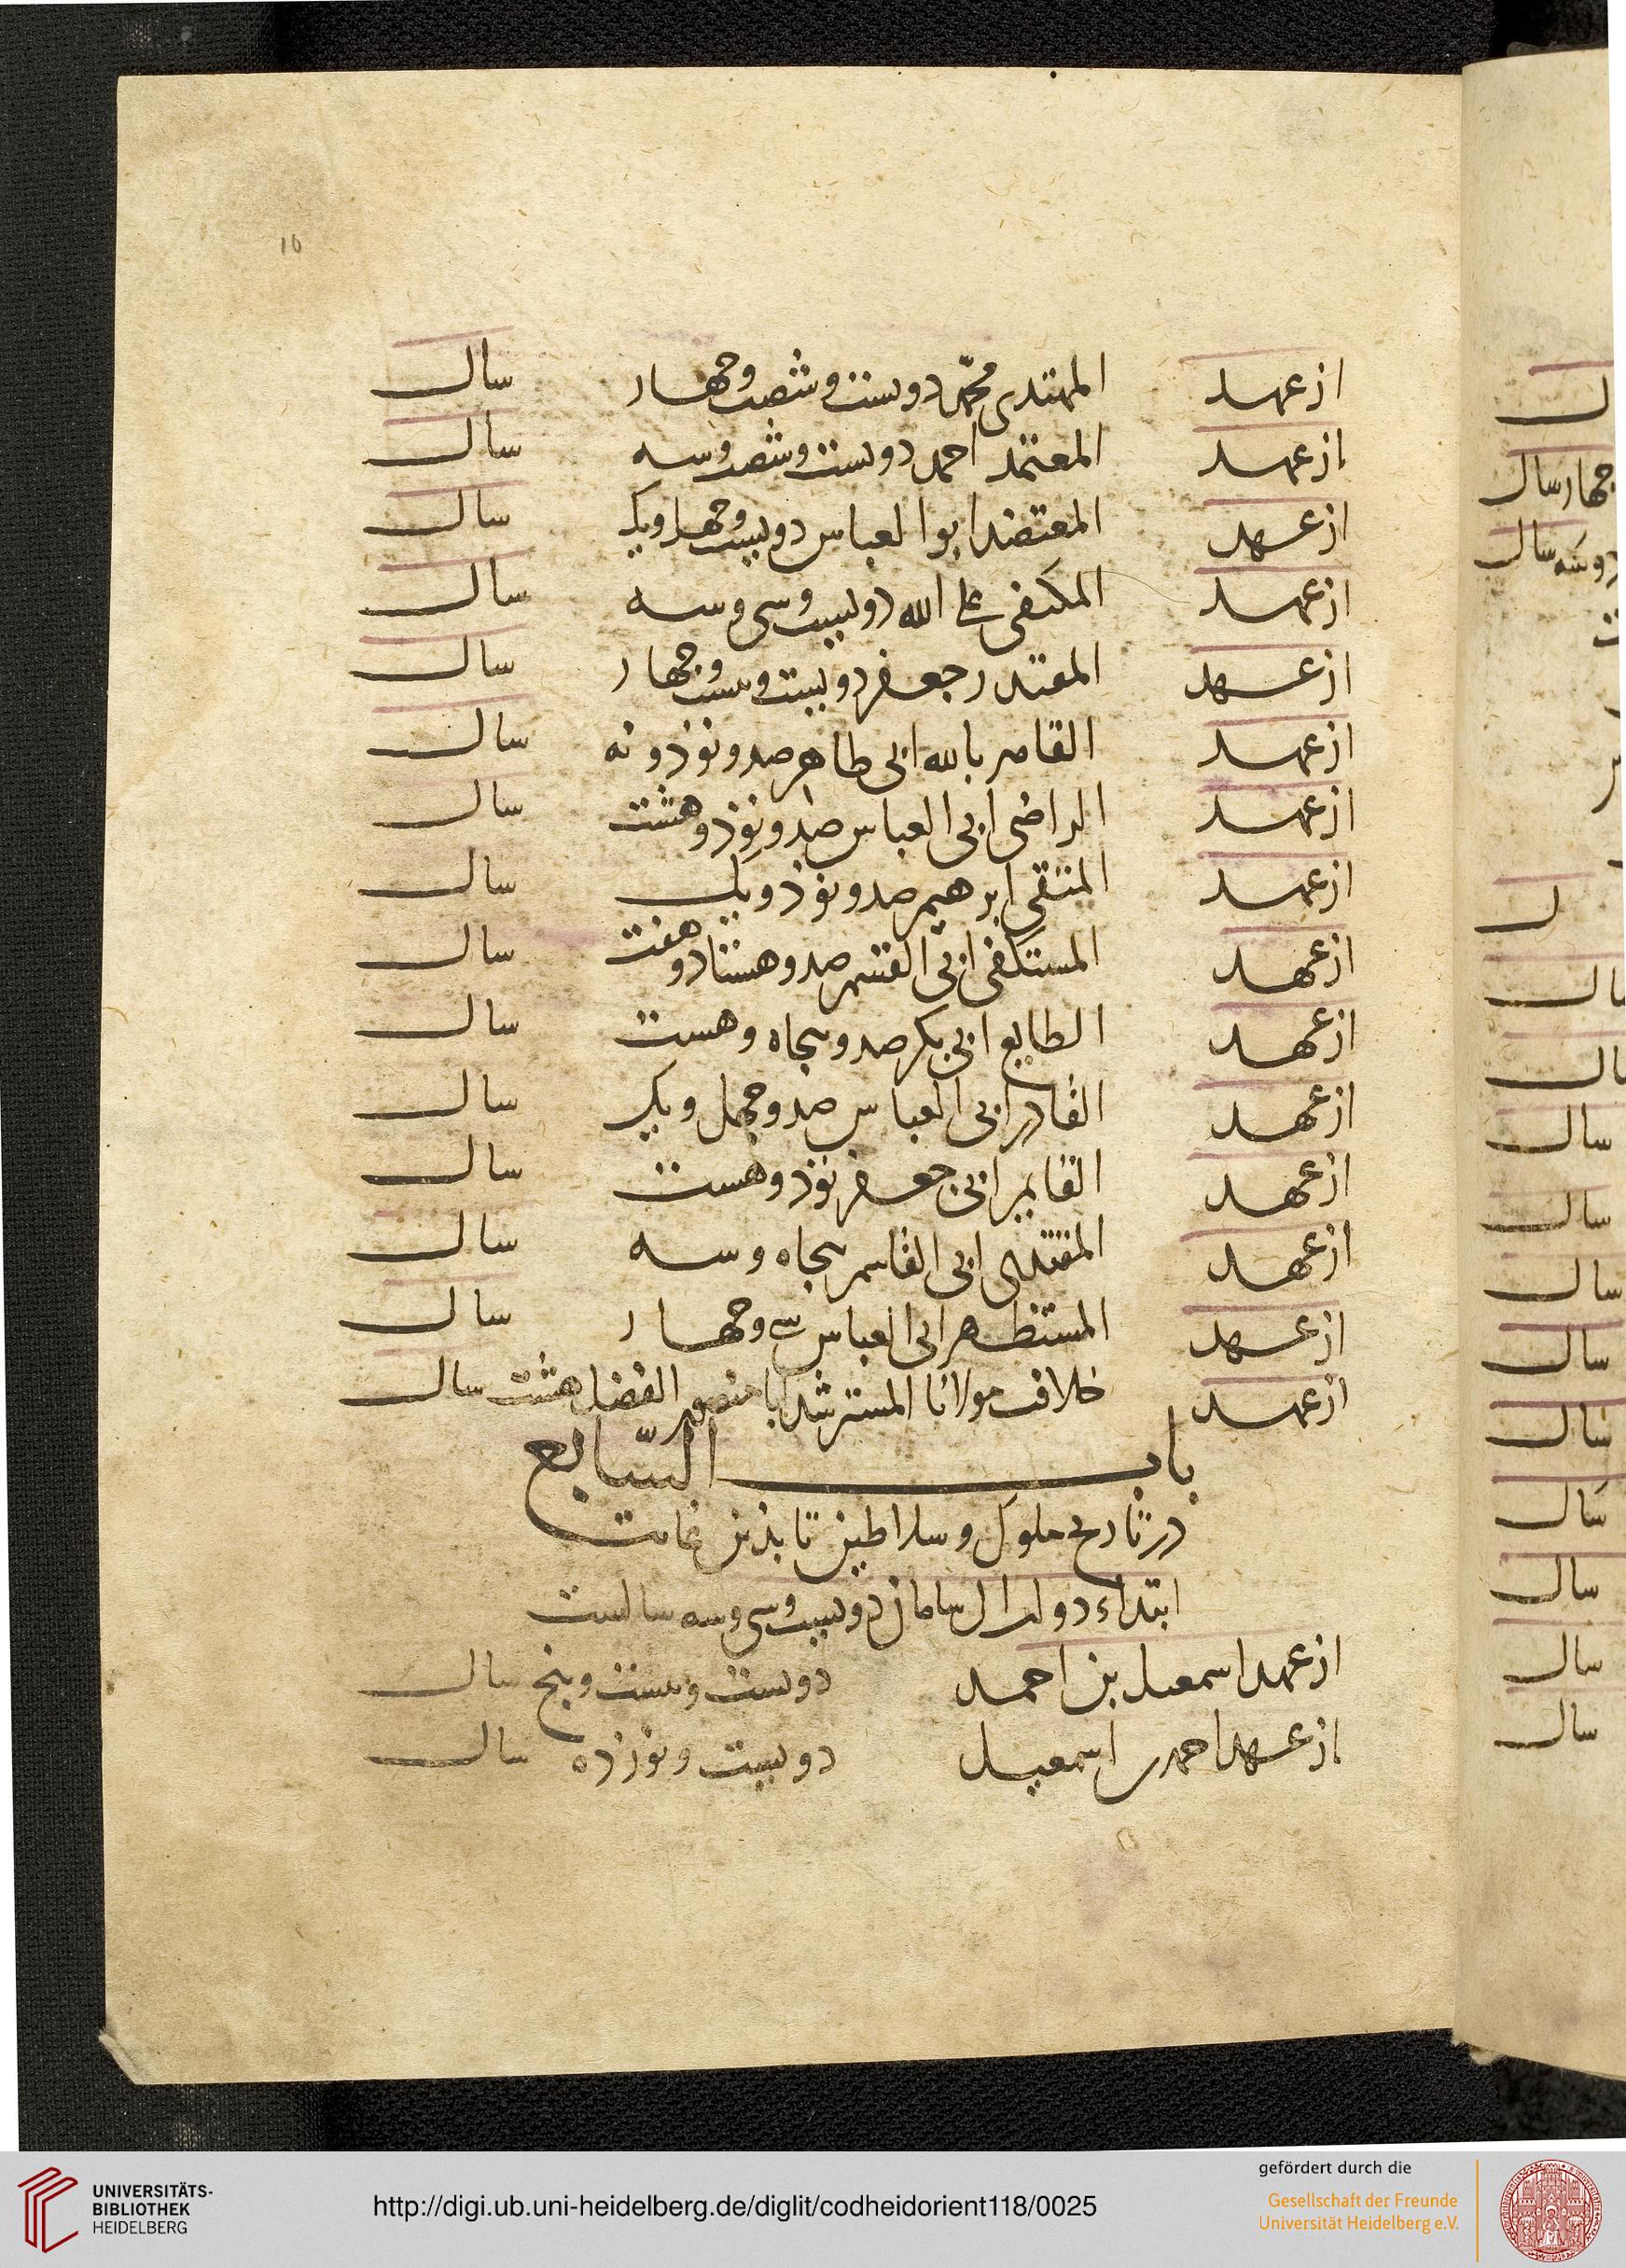 10
از عهد المهتدی محمّد دویست و شصت و چهار سال
از عهد المعتمد احمد دویست و شصت و سه سال
از عهد المعتضد ابو العباس دویست و چهل و یک سال
از عهد المکتفی علی الله دویست و سی و سه سال
از عهد المقتدر جعفر دویست و بیست و چهار سال
از عهد القاهر بالله ابی طاهر صد و نوذ و نه سال
از عهد الراضی ابی العباس صد و نوذ و هشت سال
از عهد المتقی ابرهیم صد و نوذ و یک سال
از عهد المستکفی ابی القسم صد و هشتاد و هفت سال
از عهد الطایع ابی بکر صد و پنجاه و هشت سال
از عهد القادر ابی العباس صد و چهل و یک سال
از عهد القایم ابی جعفر نوذ و هشت سال
از عهد المقتدی ابی القاسم پنجاه و سه سال
از عهد المستظهر ابی العباس سی و چهار سال
از عهد خلافت مولانا المسترشد ابا منصور الفضل هشت سال
باب السّابع
در تاریخ ملوک و سلاطین تا بذین غایت
ابتداء دولت ال سامان دویست و سی و سه سالست
از عهد اسمعیل بن احمد دویست و بیست و پنج سال
از عهد احمد بن اسمعیل دویست و نوزده سال
چهار سال
سال
سال
سال
سال
سال
سال
سال
سال
سال
سال
سال
UNIVERSITÄTS-
BIBLIOTHEK
HEIDELBERG
http://digi.ub.uni-heidelberg.de/diglit/codheidorient118/0025
gefördert durch die
Gesellschaft der Freunde
Universität Heidelberg e.V.